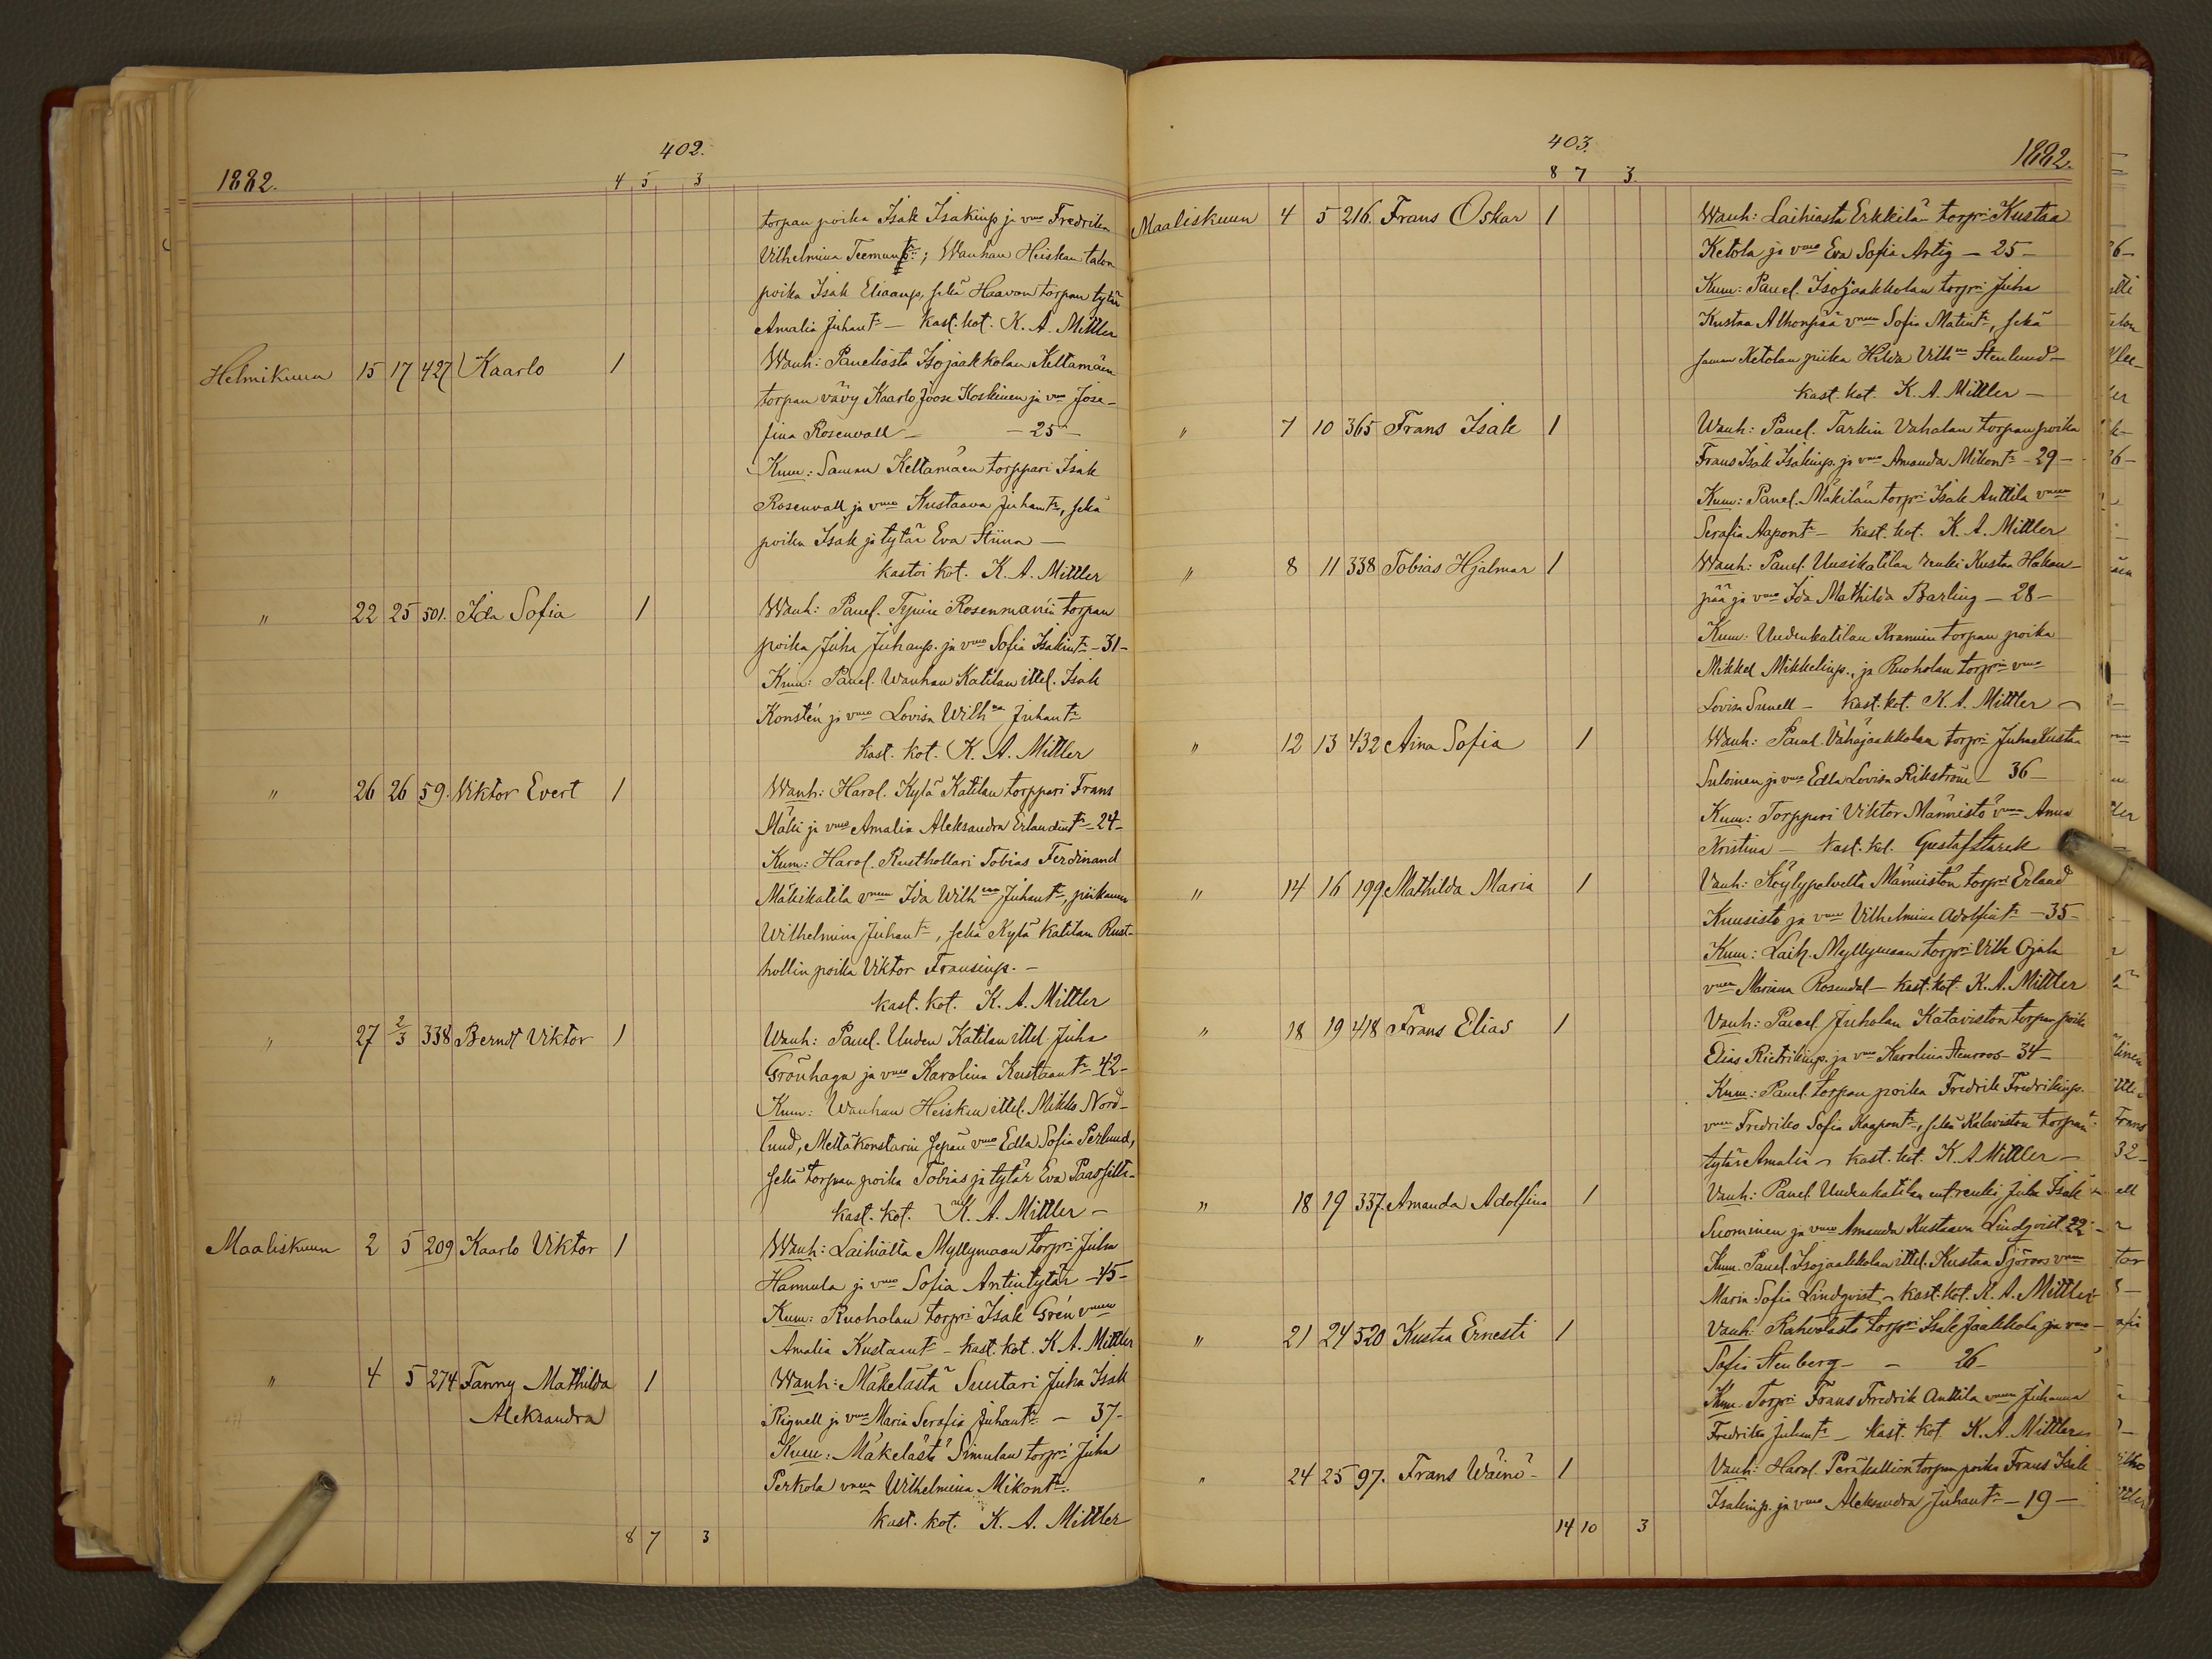 402.
1882.
4 5 3
torpan poika Isak Isakinp. ja vmo Fredrika
Vilhelmina Teemunt:; Wanhan Heiskan talon
poika Isak Eliaanp., sekä Haavon torpan tytär
Amalia Juhant: — Kast. kot. K. A. Mittler
Helmikuun 15 17 427 Kaarlo 1 Wanh: Paneliasta Isojaakkolan Keltamäen
torpan vävy Kaarlo Joose Koskinen ja vmo Jose-
fina Rosenvall — — 25 —
Kum: Saman Keltamäen torppari Isak
Rosenvall ja vmo Kustaava Juhant:, sekä
poika Isak ja tytär Eva Stiina —
kastoi kot. K. A. Mittler
" 22 25 501. Ida Sofia 1 Wanh: Panel. Rosenmanin torpan
poika Juha Juhanp. ja vmo Sofia Isakint: – 31 –
Kum: Panel. Wanhan Katilan ittel. Isak
Konstén ja vmo Lovisa Wilhna Juhant:
Kast. kot. K. A. Mittler
" 26 26 59. Viktor Evert 1 Wanh: Harol. Kylä Katilan torppari Frans
Mäki ja vmo Amalia Aleksandra Erlandint: – 24 –
Kum: Harol. Rusthollari Tobias Ferdinand
Mäkikatila vmon Ida Wilhna Juhant:, piikanen
Wilhelmina Juhant:, sekä Kylä Katilan Rust-
hollin poika Viktor Fransinp. –
Kast. kot. K. A. Mittler
" 27 2/3 338 Berndt Viktor 1 Wanh: Panel. Uuden Katilan ittel. Juha
Grönhaga ja vmo Karolina Kustaant: – 42 –
Kum: Wanhan Heiskan ittel. Mikko Nord-
lund, Mettäkonstarin sepän vmo Edla Sofia Perlund,
sekä torpan poika Tobias ja tytär Eva
Kast. kot. K. A. Mittler –
Maaliskuun 2 5 209 Kaarlo Viktor 1 Wanh: Laihialta Myllymaan torpri Juha
Hannula ja vmo Sofia Antintytär – 45 –
Kum: Ruoholan torpri Isak Grén vmon
Amalia Kustaant: – kast. kot. K. A. Mittler
" 4 5 274 Fanny Mathilda 1 Wanh: Mäkelästä Suutari Juha Isak
Aleksandra Rignell ja vmo Maria Serafia Juhant: – 37 –
Kum: Mäkelästä Simulan torpri Juha
Perkola vmon Wilhelmina Mikont:
Kast. kot. K. A. Mittler
8 7 3
403.
1882.
8 7 3.
Maaliskuun 4 5 216. Frans Oskar 1 Wanh: Laihiasta Erkkilän torpri Kustaa
Ketola ja vmo Eva Sofia Artig – 25 –
Kum: Panel. Isojaakkolan torpri Juha
Kustaa Alhonpää vmon Sofia Matint:, sekä
saman Ketolan piika Hilda Vilhna Stenlund –
Kast. kot. K. A. Mittler –
" 7 10 365 Frans Isak 1 Wanh: Panel. Tarkin Vahalan torpan poika
Frans Isak Isakinp. ja vmo Amanda Mikont: – 29 –
Kum: Panel. Mäkilän torpri Isak Anttila vmon
Serafia Aapont: – kast. kot. K. A. Mittler
" 8 11 338 Tobias Hjalmar 1 Wanh: Panel. Uusikatilan renki Kustaa Hakan-
pää ja vmo Ida Mathilda Barling – 28 –
Kum: Uudenkatilan Krannin torpan poika
Mikkel Mikkelinp., ja Ruoholan torprin vmo
Lovisa Sunell – kast. kot. K. A. Mittler
" 12 13 432 Aina Sofia 1 Wanh: Panel. Vähäjaakkolan torpri Juha Kustaa
Suloinen ja vmo Edla Lovisa Rikström – 36 –
Kum: Torppari Viktor Männistö vmon Anna
Kristina – Kast. kot. Gustaf Starck
" 14 16 199 Mathilda Maria 1 Vanh: Köylypolvelta Männistön torpri Erland
Kuusisto ja vmo Vilhelmina Adolfint: – 35 –
Kum: Laih. Myllymaan torpri Vilh. Ojala
vmon Mariana Rosendal – kast. kot K. A. Mittler
" 18 19 418 Frans Elias 1 Vanh: Panel. Juholan Kataviston torpan poika
Elias Rietrikinp. ja vmo Karolina Stenroos – 34 –
Kum: Panel. torpan poika Fredrik Fredrikinp.
vmon Fredrika Sofia Kaapont:, sekä Kataviston torpan
tytär Amalia – kast. kot. K. A. Mittler –
" 18 19 337. Amanda Adolfina 1 Vanh: Panel. Uudenkatilan ent. renki Juha Isak
Suominen ja vmo Amanda Kustaava Lindqvist 22 –
Kum. Panel. Isojaakkolan ittel. Kustaa Sjöroos vmon
Maria Sofia Lindqvist – kast. kot. K. A. Mittler
" 21 24 520 Kusta Ernesti 1 Vanh: Kahvolasta torpri Isak Jaakkola ja vmo
Sofia Stenberg – – 26 –
Kum. Torpri Frans Fredrik Anttila vmon Juhanna
Fredrika Juhant: – Kast. kot. K. A. Mittler
" 24 25 97. Frans Wäinö – 1 Vanh: Harol. Peräkallion torpan poika Frans Isak
Isakinp. ja vmo Aleksandra Juhant: – 19 –
14 10 3